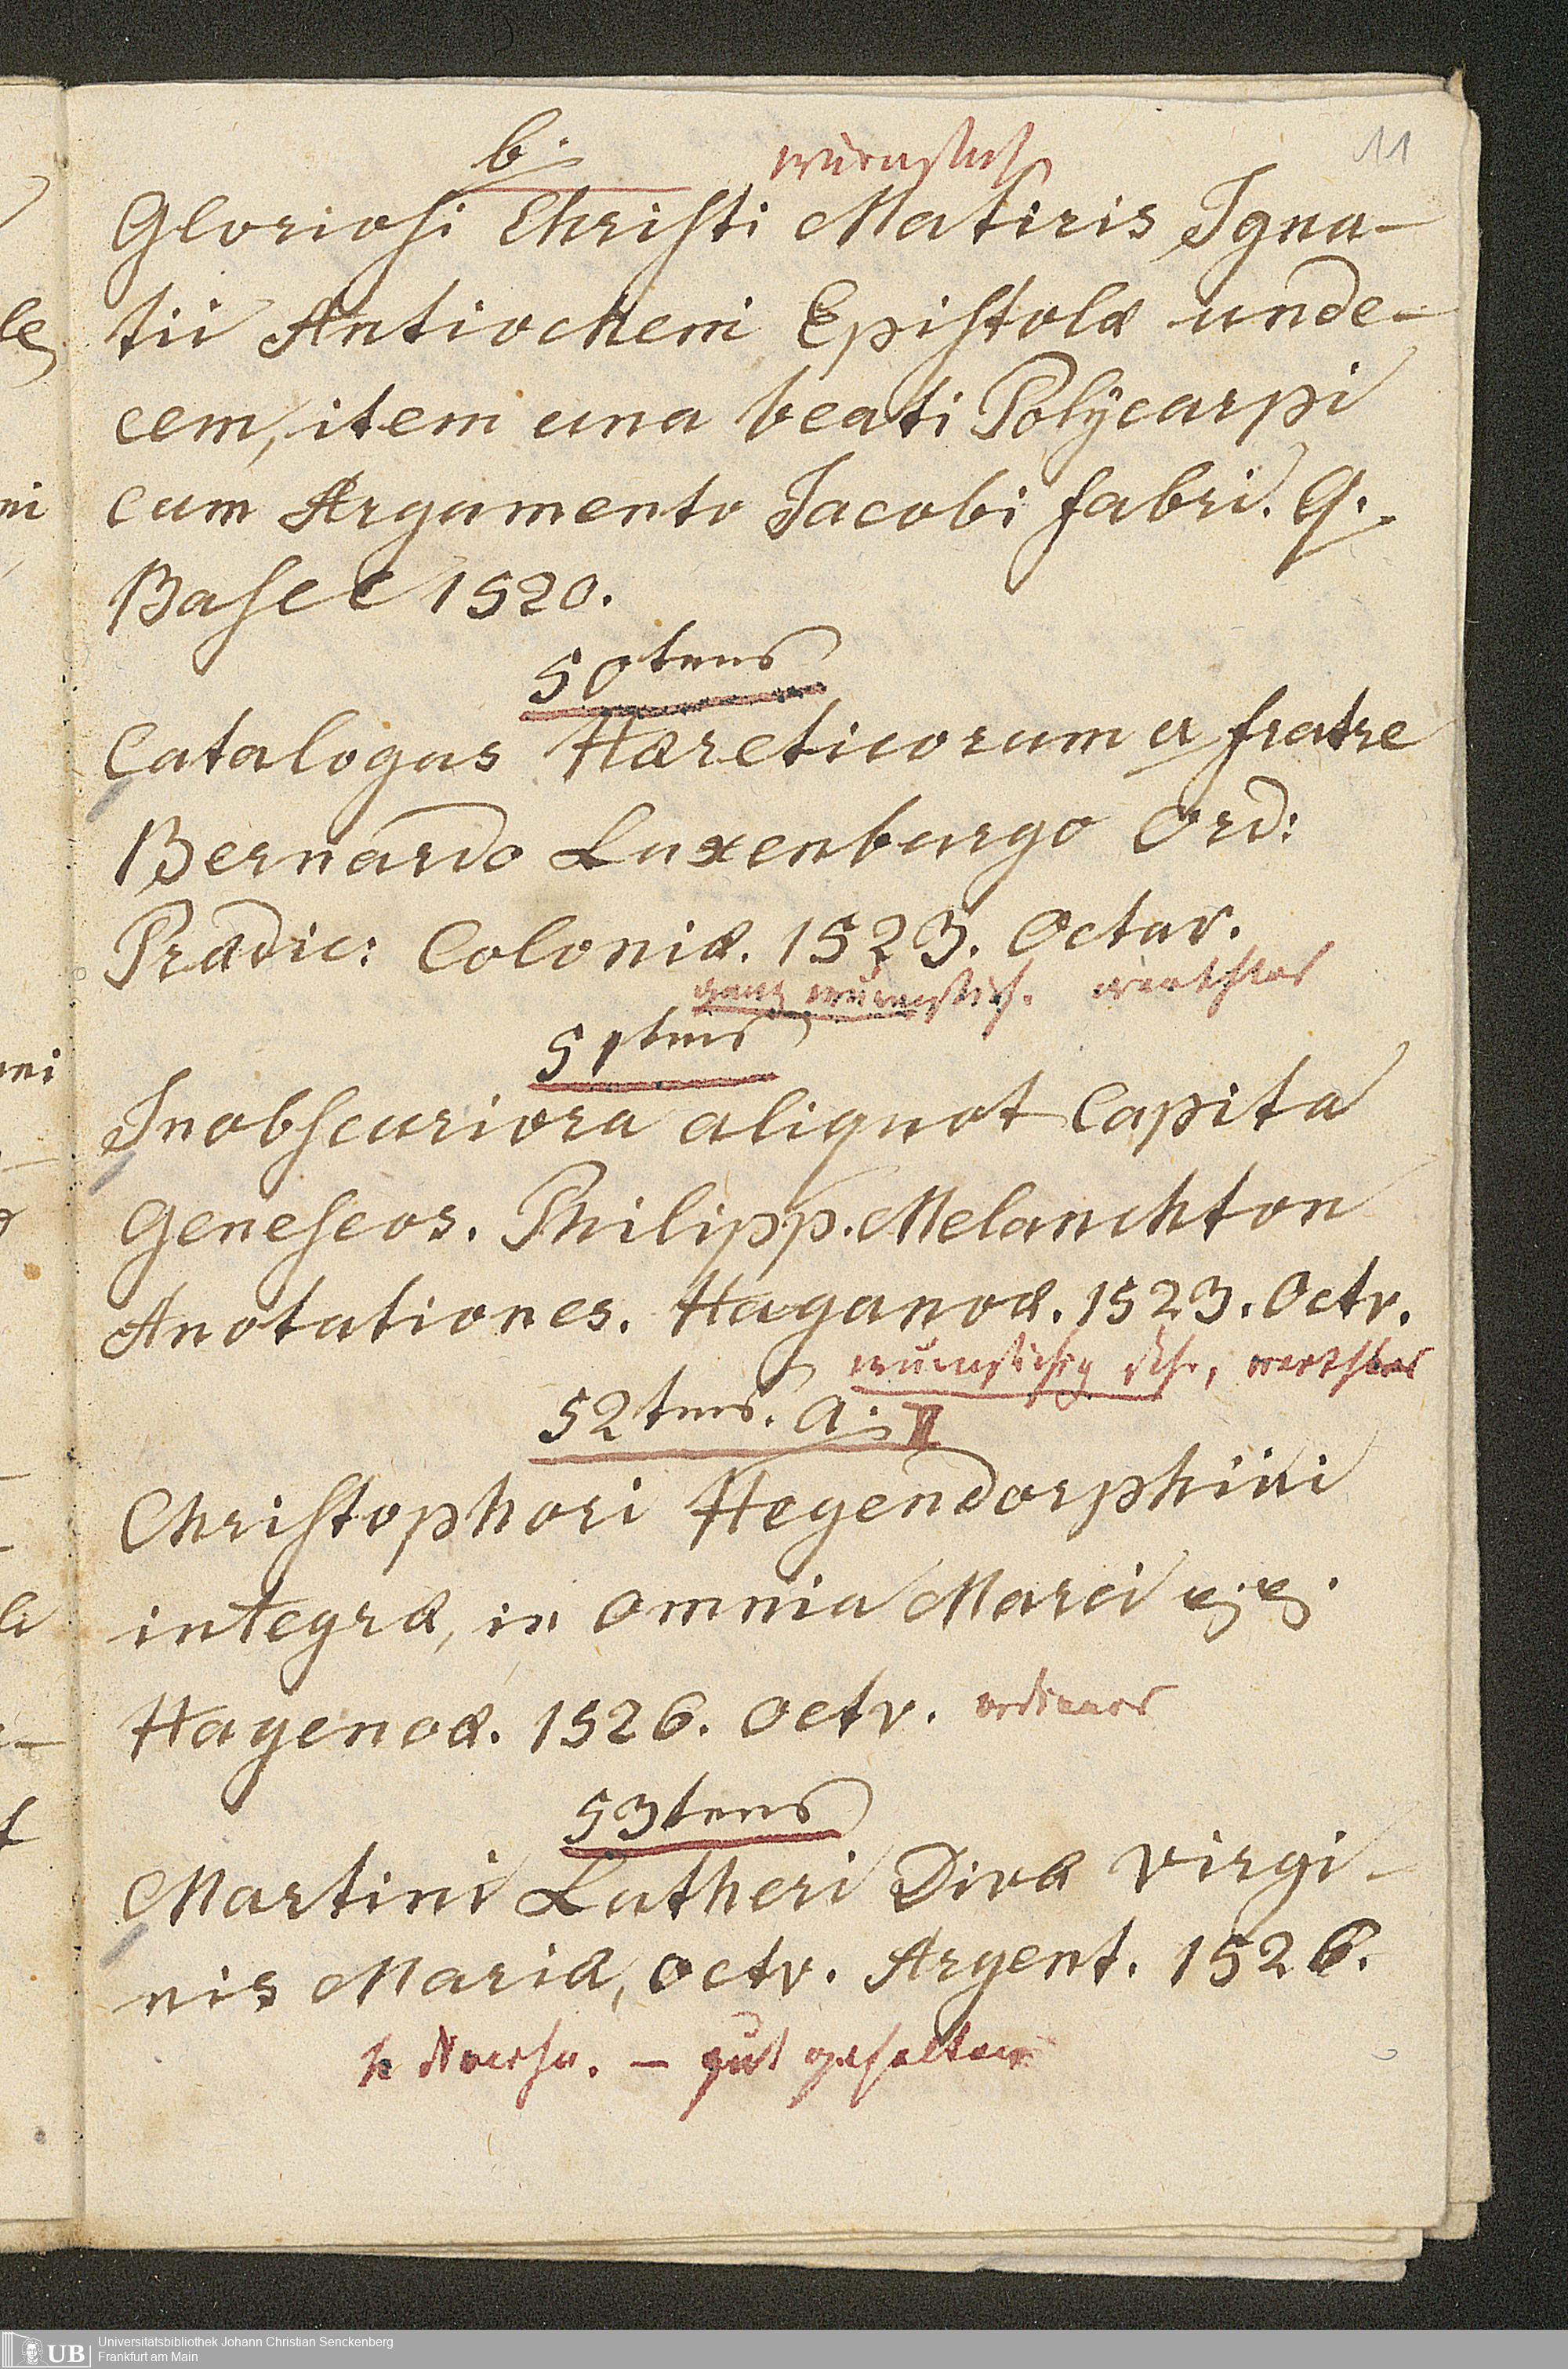 11
b. wurmstich
Gloriosi Christi Matiris Igna-
tii Antiocheni Epistolæ unde-
cem, item una beati Polÿcarpi
cum Argumento Jacobi fabri. q.
Basel 1520.
50tens
Catalogus Hæreticorum a fratre
Bernardo Luxenburgo Ord:
Prædic: Coloniæ. 1523. Octav.
ganz wurmstich. werthlos
51tens
In obscuriora aliquot Capita
Geneseos. Philipp. Melanchton
Anotationes. Haganoæ. 1523. Octv.
wurmstichig werthlos
52tens. a. II
Christophori Hegendorphini
integræ, in omnia Marci
Hagenoæ. 1526. octv. ordinär
53tens
Martini Lutheri Divæ Virgi-
nis Mariæ, octv. Argent. 1526.
– gut gehalten
le
ni
UB Universitätsbibliothek Johann Christian Senckenberg
Frankfurt am Main